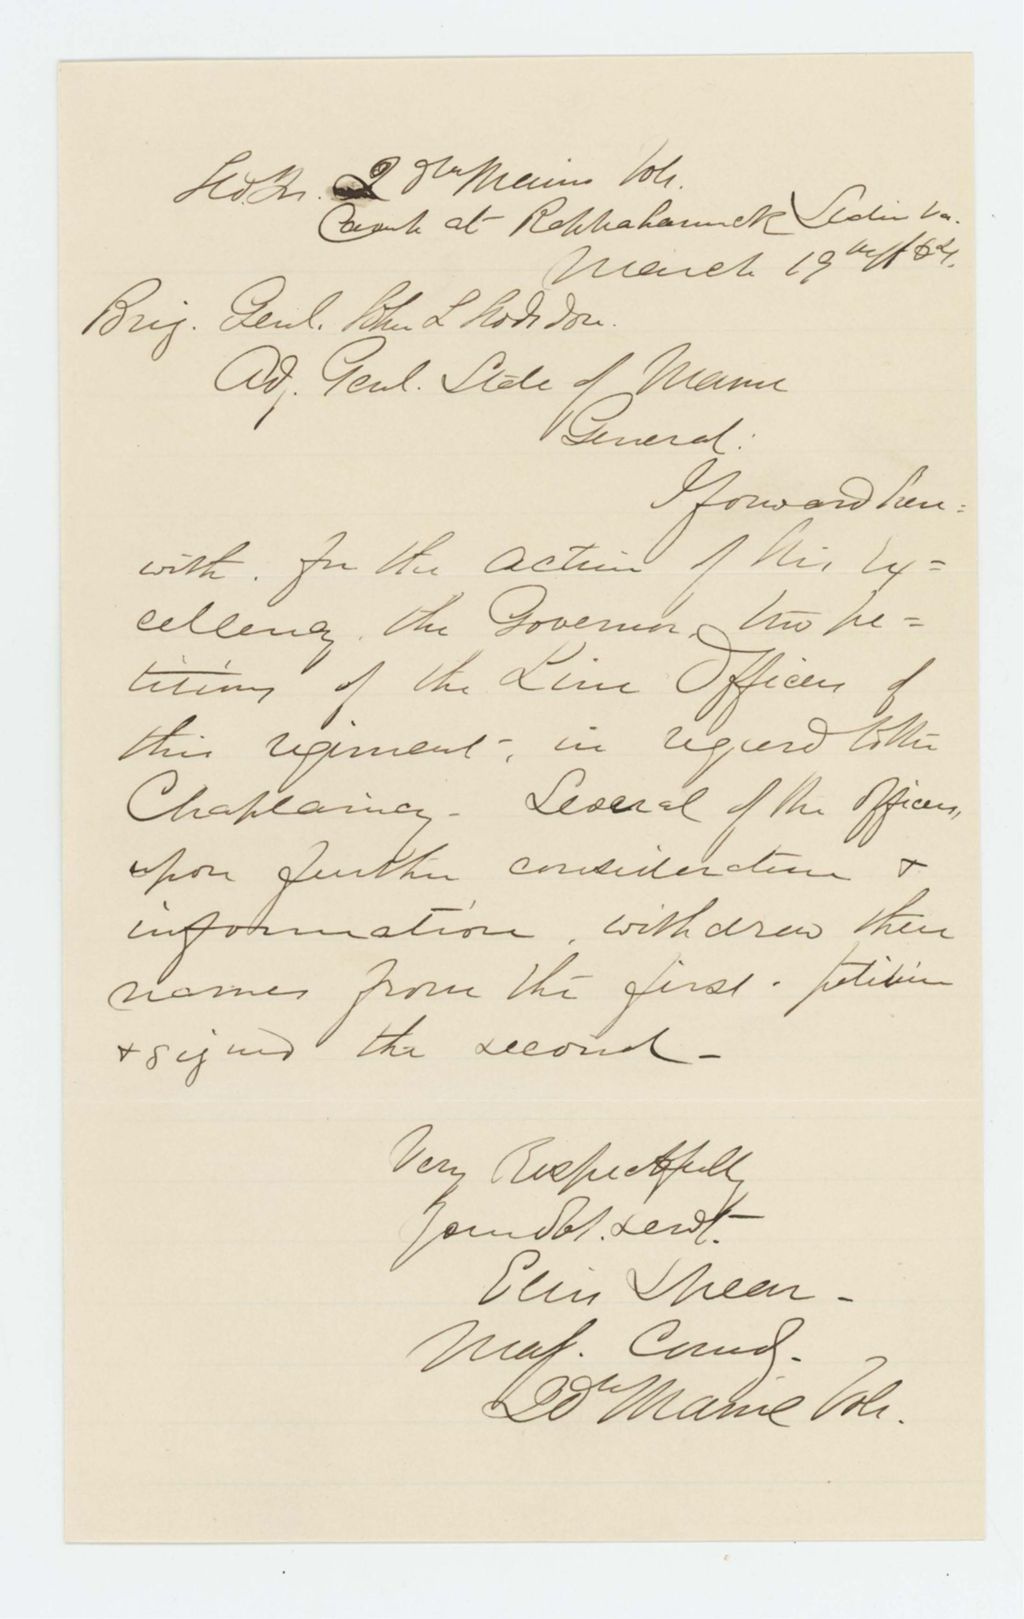 Hd. Qrs. 20th Maine Vols.
Camp at Rappahannock Station Va.
March 19th 1864.
Brig. Genl. John L Hodsdon.
Adj. Genl. State of Maine
General:
I forward here=
with, for the action of His Ex=
cellency, the Governor, two pe=
titions of the Line Officers of
this regiment, in regard to the
Chaplaincy. Several of the Officers,
upon further consideration &
information, withdrew their
names from the first petition
& signed the second -
Very Respectfully
Your Obt. Servt.
Ellis Spear -
Maj. Comd'g.
20th Maine Vols.